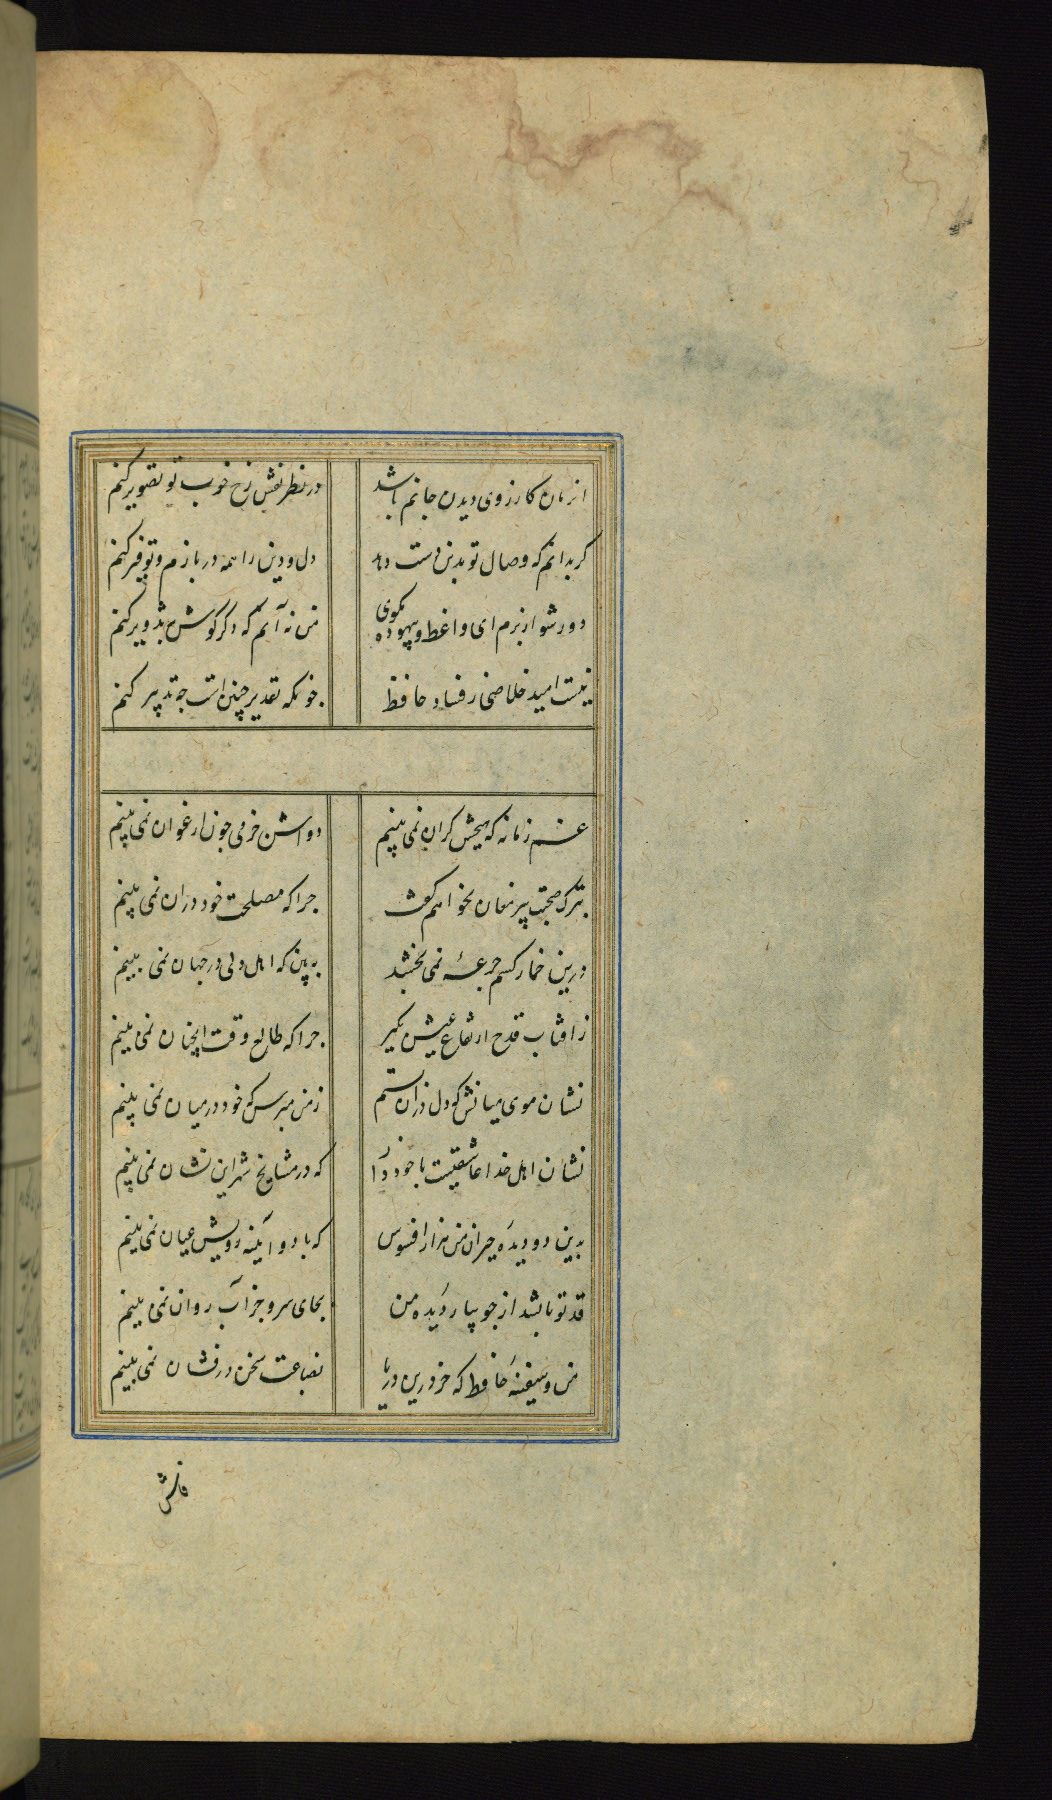 انزمان کارزوی دیدن جانم باشد در نظر نقش رخ خوب تو تصویر کنم
کر بدانم که وصال تو بدین دست دهد دل و دین را همه در بازم و توفیر کنم
دور شو از برم ای واعظ و بیهوده مکوی من نه آنم که دکر کوش بتذویر کنم
نیست امید خلاصی ز فساد حافظ جونکه تقدیر چنین است جه تدبیر کنم
غم زمانه که هیچش کران نمی بینم دواش جز می جون ارغوان نمی بینم
بترک صحبت پیر مغان نخواهم کفت جرا که مصلحت خود در ان نمی بینم
درین خمار کسم جرعهٔ نمی بخشد به بین که اهل دلی در جهان نمی بینم
ز افتاب قدح ارتفاع عیش بکیر جرا که طالع وقت انچنان نمی بینم
نشان موی میانش که دل در ان بستم ز من مپرس که خود در میان نمی بینم
نشان اهل خدا عاشقیست با خود دار که در مشایخ شهر این نشان نمی بینم
بدین دو دیده حیران من هزار افسوس که با دو آینه رویش عیان نمی بینم
قد تو تا بشد از جویبار دیده من بجای سرو جز آب روان نمی بینم
من و سفینه حافظ که جز درین دریا بضاعت سخن درفشان نمی بینم
فاش